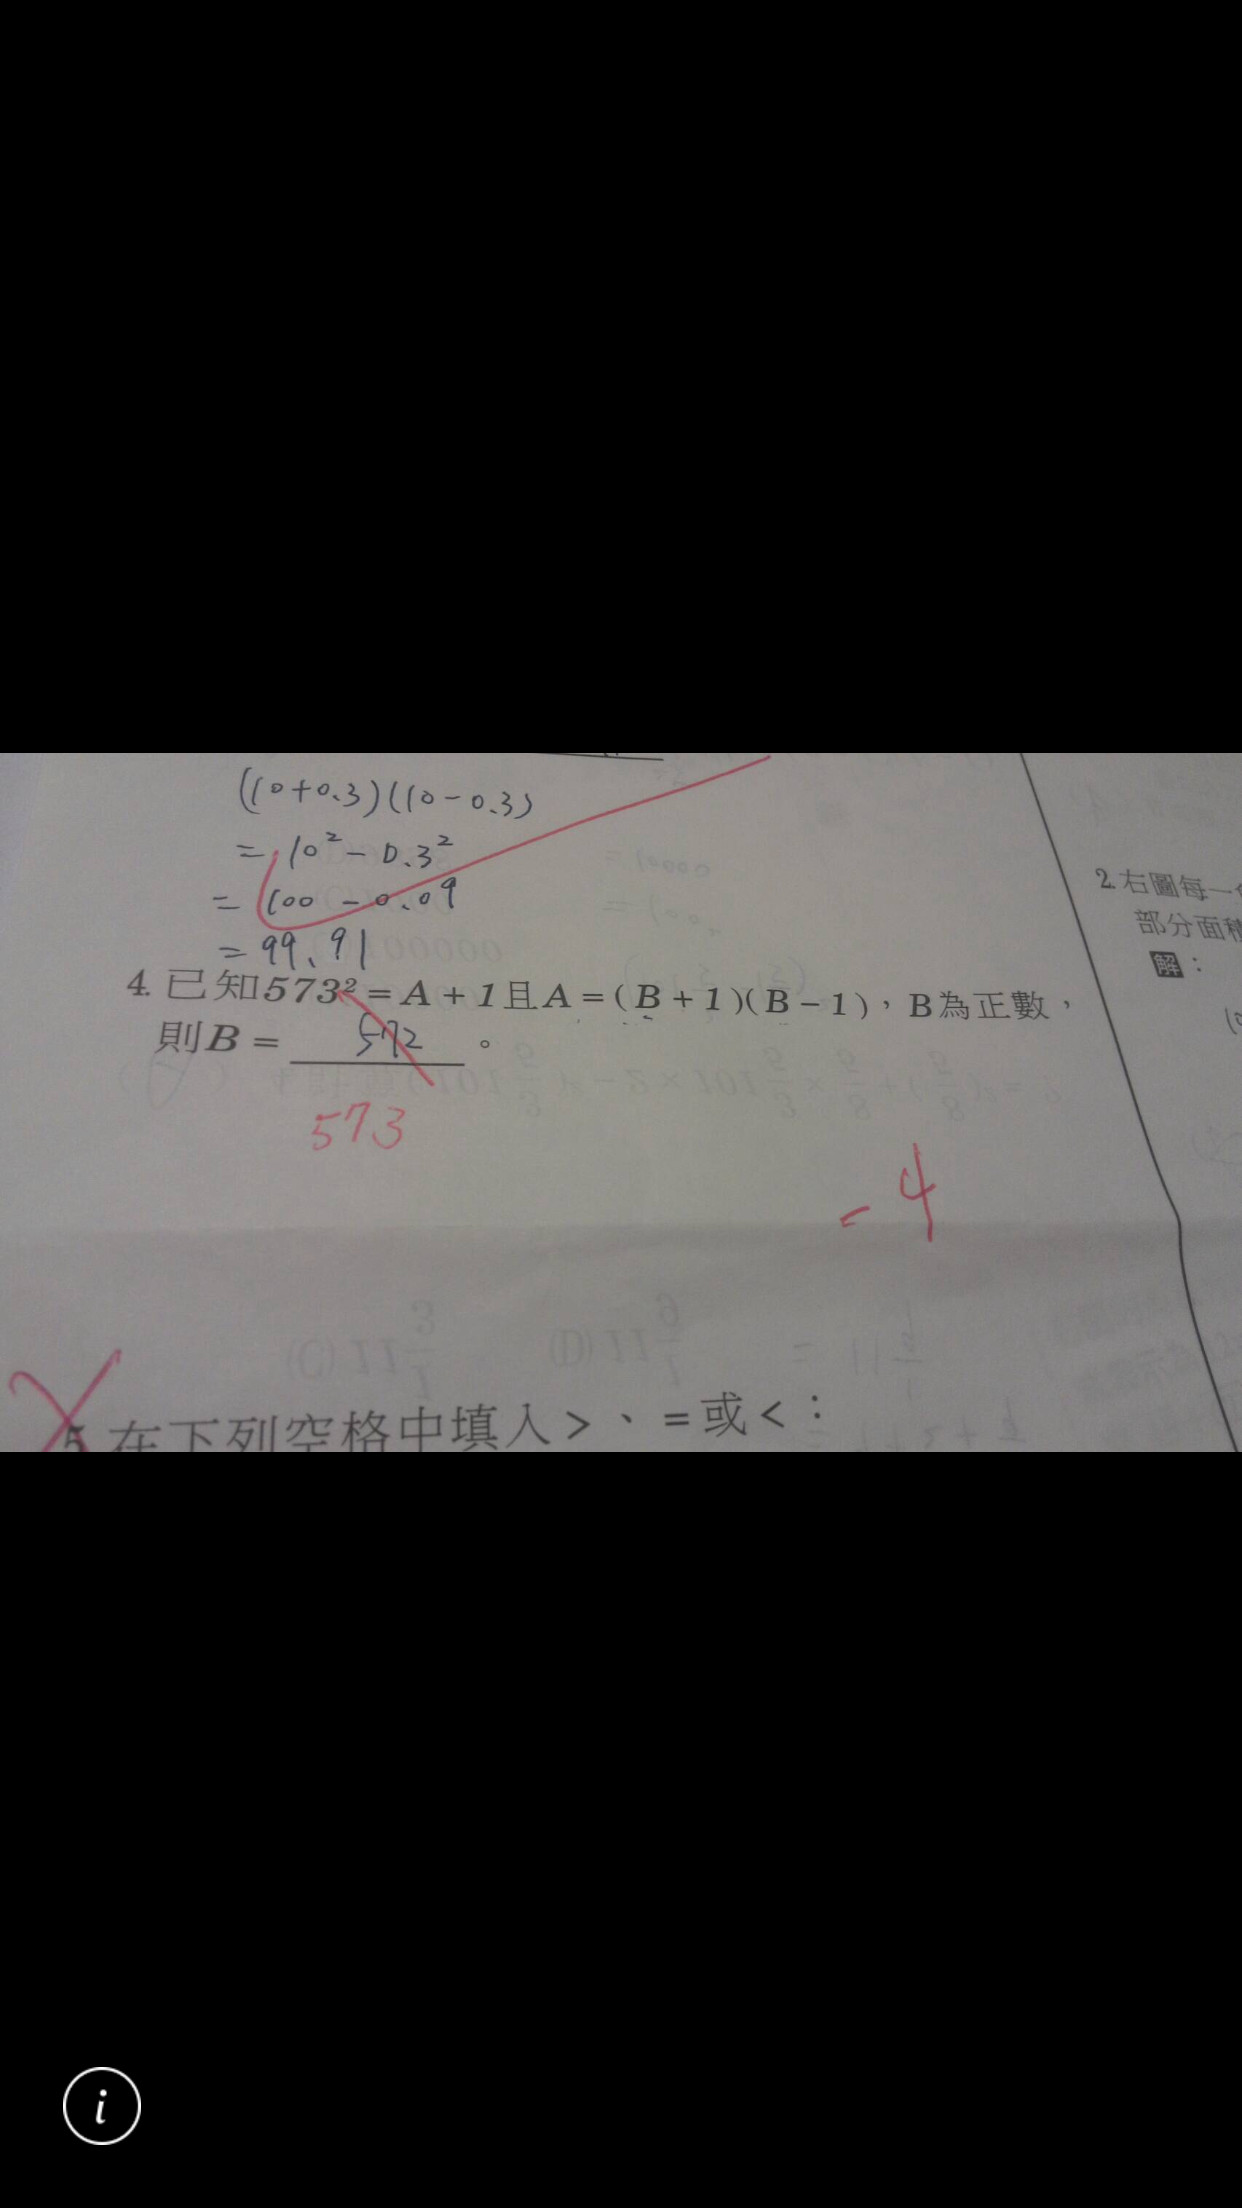 (10+0.3)(10-0.3)
= 10²-0.3²
= 100-0.09
= 99.91
4. 已知573²=A+1且A=(B+1)(B-1),B為正數,
則B= 572 。
573
-4
5. 在下列空格中填入>、=或<:
2. 右圖每一
部分面積
解:
i